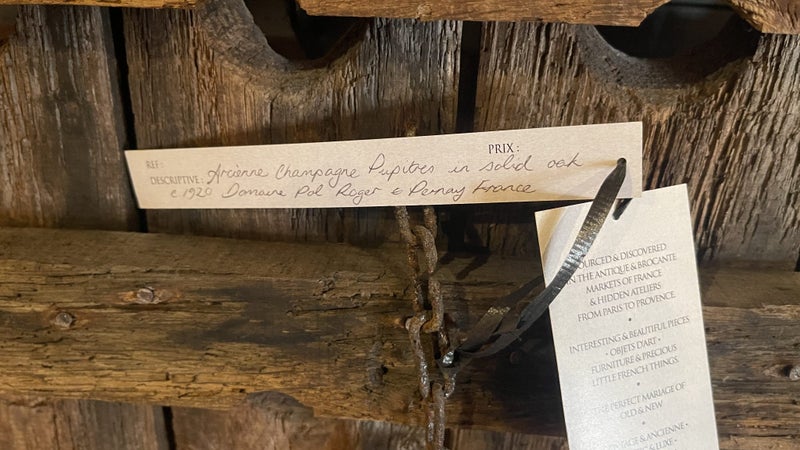 REF :
PRIX :
DESCRIPTIVE : Arcienne Champagne Pupitres in solid oak
c.1920 Domaine Pol Roger & Pernay France
OURCED & DISCOVERED
IN THE ANTIQUE & BROCANTE
MARKETS OF FRANCE
& HIDDEN ATELIERS
FROM PARIS TO PROVENCE.
•
INTERESTING & BEAUTIFUL PIECES
• OBJETS D'ART •
FURNITURE & PRECIOUS
LITTLE FRENCH THINGS.
•
THE PERFECT MARIAGE OF
OLD & NEW
•
& ANCIENNE •
& LUXE •